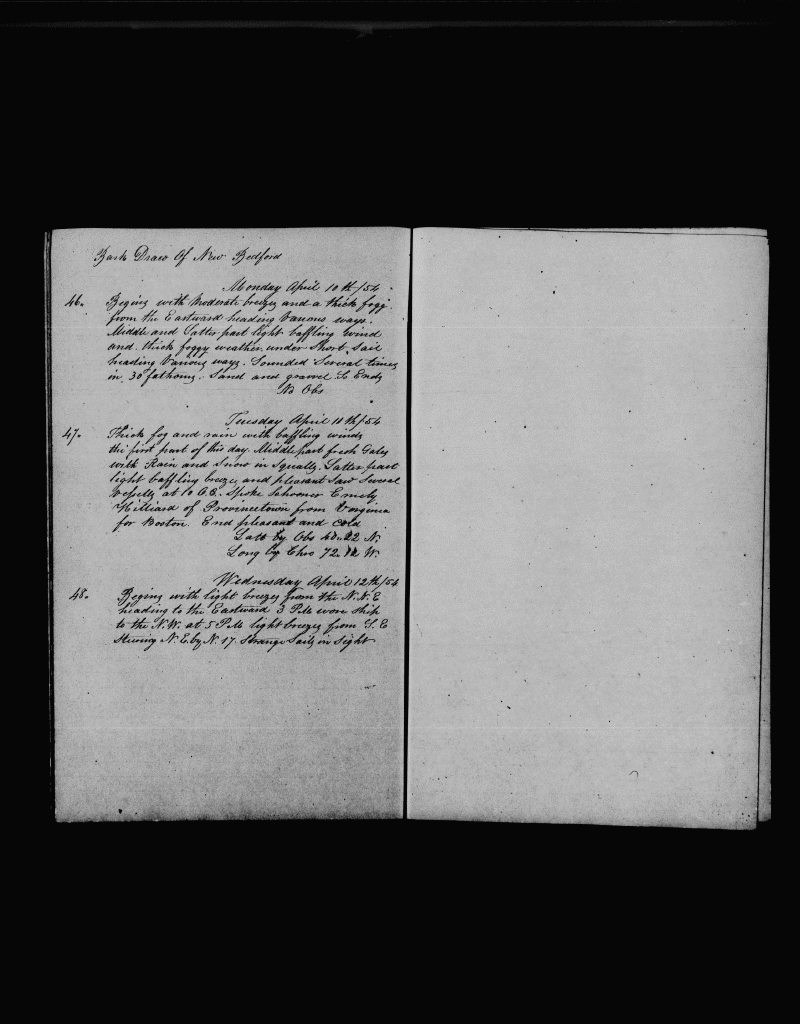 Bark Draco Of New Bedford
Monday April 10th/54
46. Begins with Moderate breezes and a thick fogg
from the Eastward heading Various ways.
Middle and Latter part light baffling wind
and thick foggy weather under Short Sail
heading Various ways. Sounded Several times
in 30 fathoms. Sand and gravel So Ends
No Obs
Tuesday April 11th/54
47. Thick fog and rain with baffling winds
the first part of this day. Middle part fresh Gales
with Rain and Snow in Squalls. Latter part
light baffling breezes and pleasant Saw Several
Vessells at Spoke Schooner Emely
Hilliard of Provincetown from Vorginia
for Boston. End pleasant and cold
Latt by Obs N.
Long by Chro 72. W.
Wednesday April 12th/54
48. Begins with light breezes from the N.N.E
heading to the Eastward 3 P.M. wore ship
to the N.W. at 5 P.M. light breezes from S.E
Stering N.E. by N. 17 Strange Sails in Sight